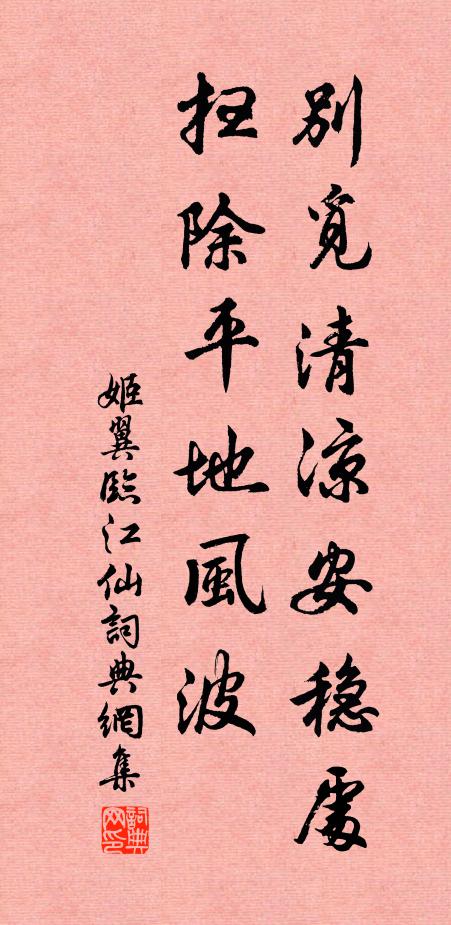 別覓清凉安稳處
扫除平地風波
姬翼臨江仙詞典網集
詞典网印